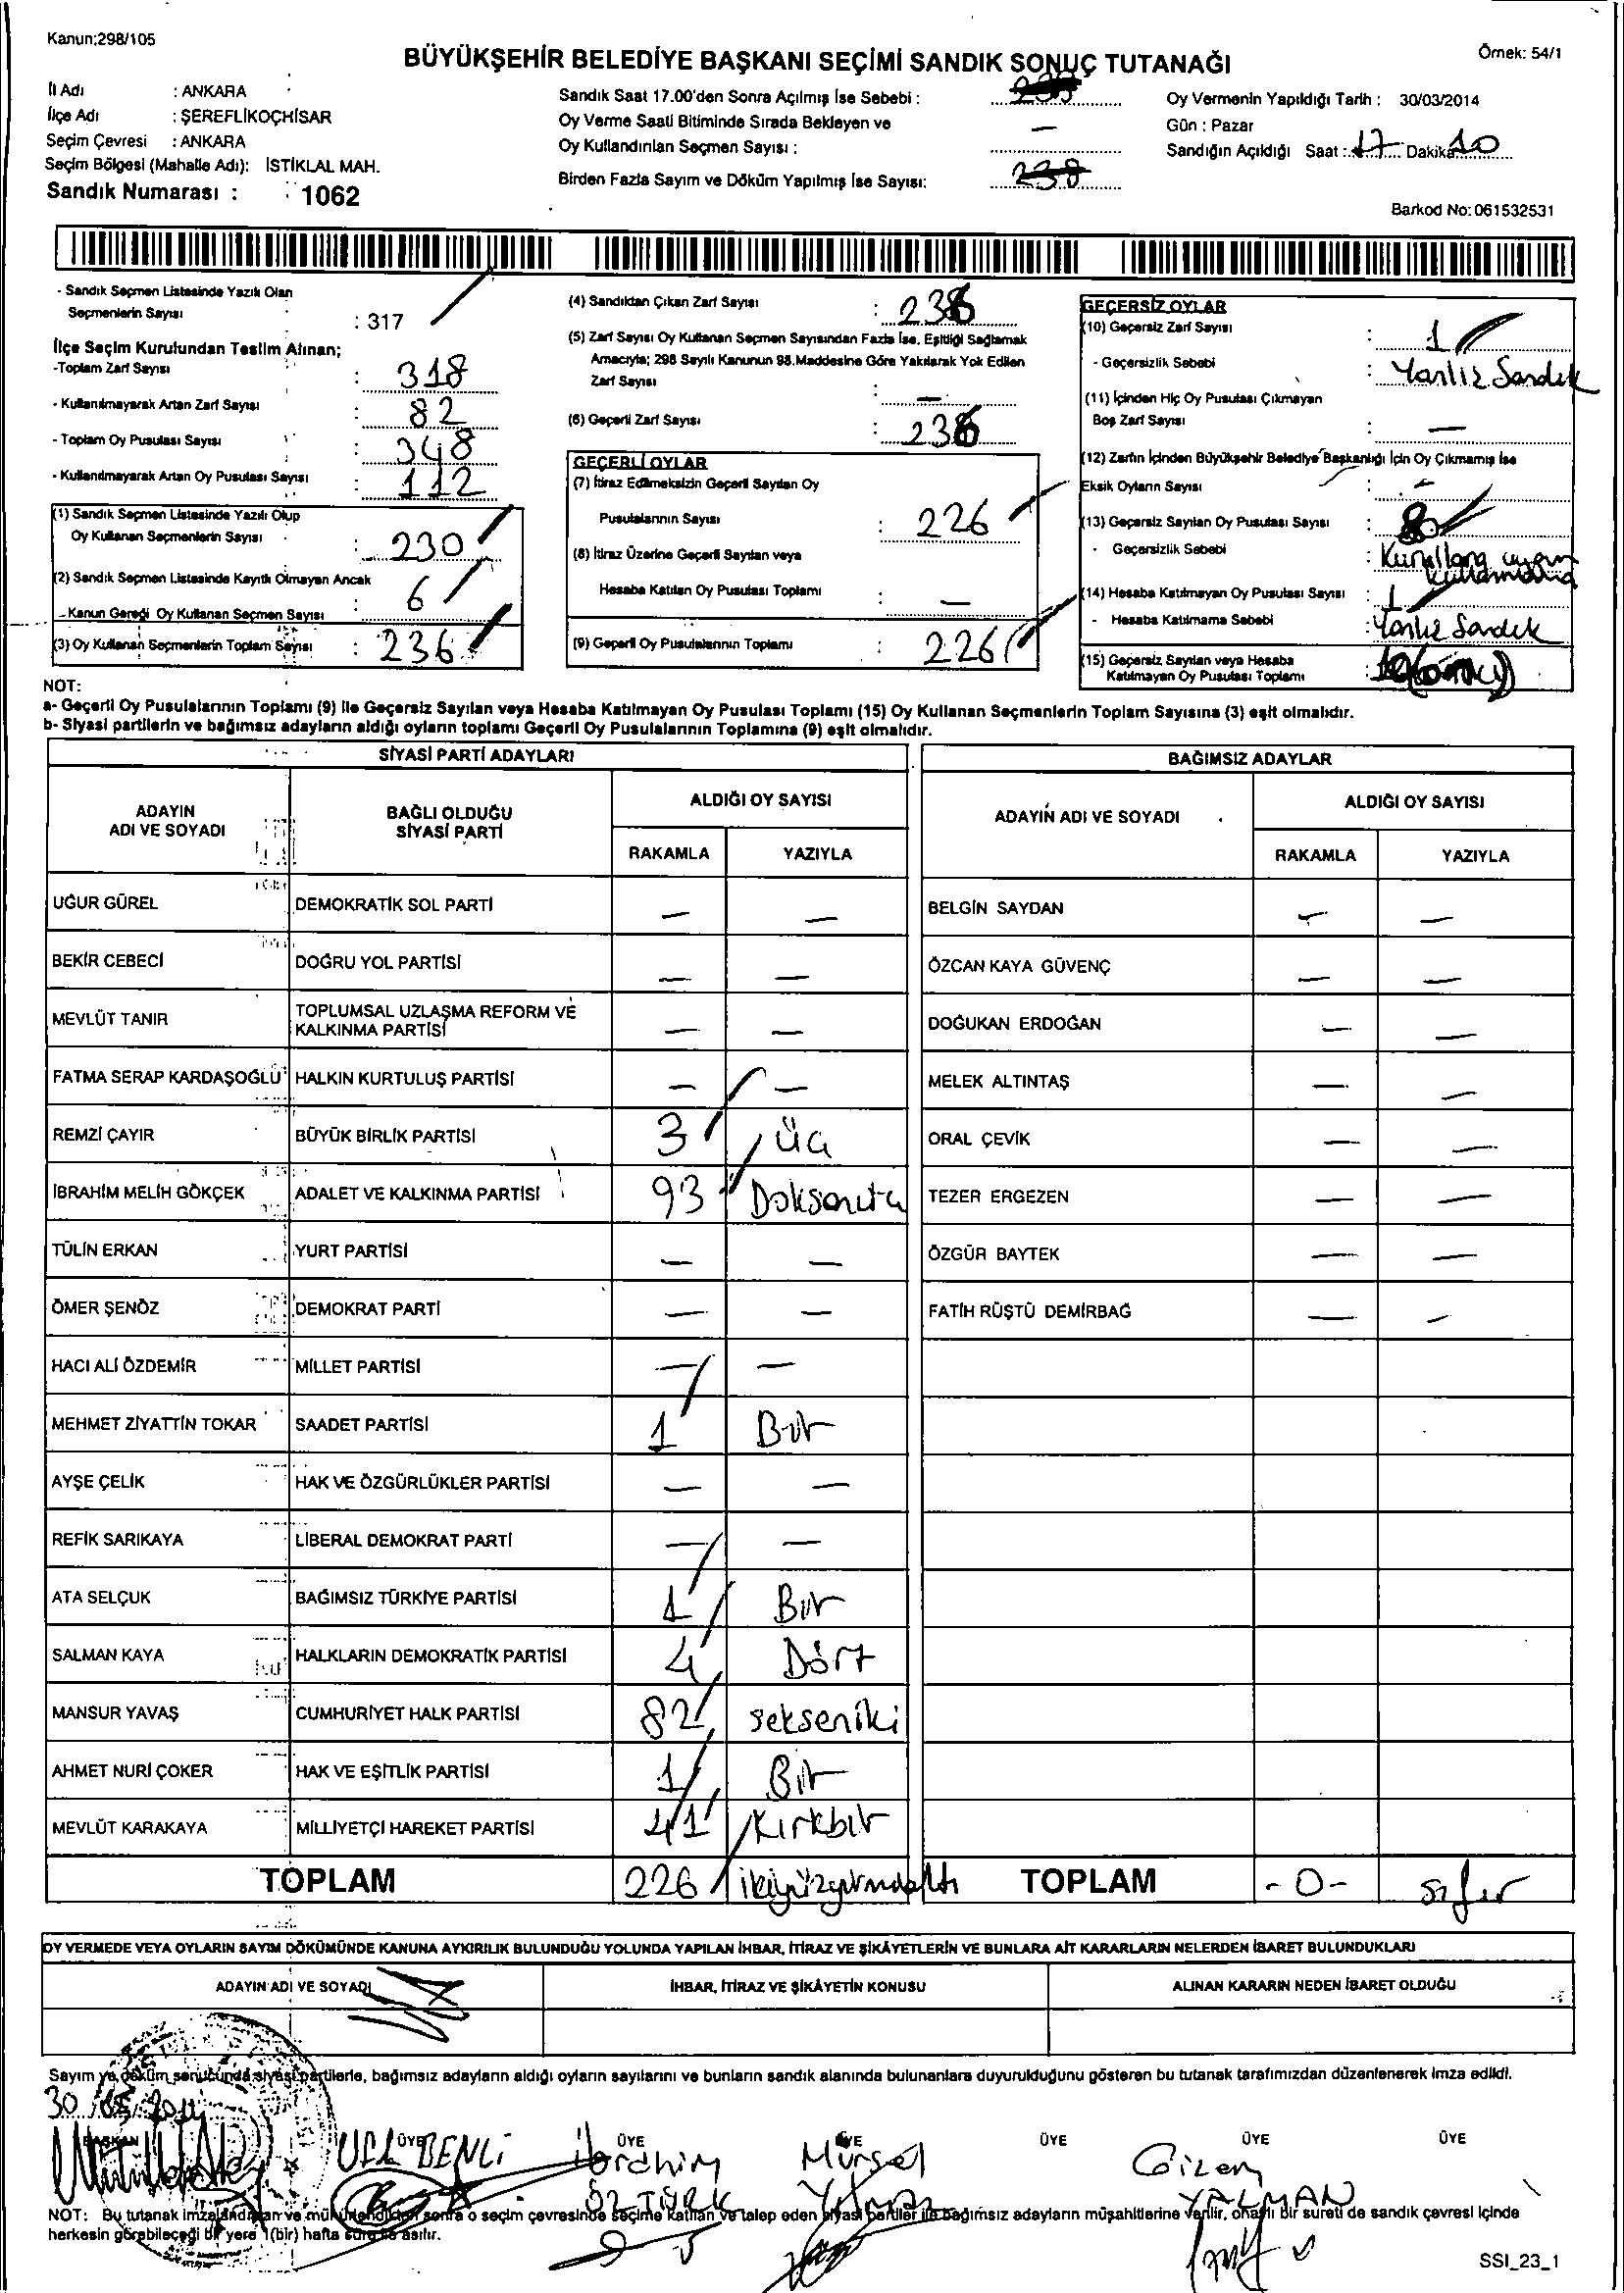 Kanun;298/105
BÜYÜKŞEHİR BELEDİYE BAŞKANI SEÇİMİ SANDIK SONUÇ TUTANAĞI
Örnek: 54/1
İl Adı : ANKARA
İlçe Adı : ŞEREFLİKOÇHİSAR
Seçim Çevresi : ANKARA
Seçim Bölgesi (Mahalle Adı): İSTİKLAL MAH.
Sandık Numarası : 1062
Sandık Saat 17.00'den Sonra Açılmış İse Sebebi :
Oy Verme Saati Bitiminde Sırada Bekleyen ve
Oy Kullandırılan Seçmen Sayısı : —
Birden Fazla Sayım ve Döküm Yapılmış İse Sayısı:
Oy Vermenin Yapıldığı Tarih : 30/03/2014
Gün : Pazar
Sandığın Açıldığı Saat : 17 Dakika 10
Barkod No: 061532531
- Sandık Seçmen Listesinde Yazılı Olan
Seçmenlerin Sayısı : 317
İlçe Seçim Kurulundan Teslim Alınan;
-Toplam Zarf Sayısı : 318
- Kullanılmayarak Artan Zarf Sayısı : 82
- Toplam Oy Pusulası Sayısı : 348
- Kullanılmayarak Artan Oy Pusulası Sayısı : 112
(1) Sandık Seçmen Listesinde Yazılı Olup
Oy Kullanan Seçmenlerin Sayısı : 230
(2) Sandık Seçmen Listesinde Kayıtlı Olmayan Ancak
- Kanun Gereği Oy Kullanan Seçmen Sayısı : 6
(3) Oy Kullanan Seçmenlerin Toplam Sayısı : 236
(4) Sandıktan Çıkan Zarf Sayısı : 236
(5) Zarf Sayısı Oy Kullanan Seçmen Sayısından Fazla İse, Eşitliği Sağlamak
Amacıyla; 298 Sayılı Kanunun 98.Maddesine Göre Yakılarak Yok Edilen
Zarf Sayısı : —
(6) Geçerli Zarf Sayısı : 236
GEÇERLİ OYLAR
(7) İtiraz Edilmeksizin Geçerli Sayılan Oy
Pusulalarının Sayısı : 226
(8) İtiraz Üzerine Geçerli Sayılan veya
Hesaba Katılan Oy Pusulası Toplamı : —
(9) Geçerli Oy Pusulalarının Toplamı : 226
GEÇERSİZ OYLAR
(10) Geçersiz Zarf Sayısı : 1
- Geçersizlik Sebebi : Yanlız Sandık
(11) İçinden Hiç Oy Pusulası Çıkmayan
Boş Zarf Sayısı : —
(12) Zarfın İçinden Büyükşehir Belediye Başkanlığı İçin Oy Çıkmamış İse
Eksik Oyların Sayısı : —
(13) Geçersiz Sayılan Oy Pusulası Sayısı : 8
- Geçersizlik Sebebi : Kurallara uygun
kullanmama
(14) Hesaba Katılmayan Oy Pusulası Sayısı : 1
- Hesaba Katılmama Sebebi : Yanlız Sandık
(15) Geçersiz Sayılan veya Hesaba
Katılmayan Oy Pusulası Toplamı :
NOT:
a- Geçerli Oy Pusulalarının Toplamı (9) ile Geçersiz Sayılan veya Hesaba Katılmayan Oy Pusulası Toplamı (15) Oy Kullanan Seçmenlerin Toplam Sayısına (3) eşit olmalıdır.
b- Siyasi partilerin ve bağımsız adayların aldığı oyların toplamı Geçerli Oy Pusulalarının Toplamına (9) eşit olmalıdır.
SİYASİ PARTİ ADAYLARI
ADAYIN ADI VE SOYADI BAĞLI OLDUĞU SİYASİ PARTİ ALDIĞI OY SAYISI
RAKAMLA YAZIYLA
UĞUR GÜREL DEMOKRATİK SOL PARTİ — —
BEKİR CEBECİ DOĞRU YOL PARTİSİ — —
MEVLÜT TANIR TOPLUMSAL UZLAŞMA REFORM VE KALKINMA PARTİSİ — —
FATMA SERAP KARDAŞOĞLU HALKIN KURTULUŞ PARTİSİ — —
REMZİ ÇAYIR BÜYÜK BİRLİK PARTİSİ 3 üç
İBRAHİM MELİH GÖKÇEK ADALET VE KALKINMA PARTİSİ 93 Doksanüç
TÜLİN ERKAN YURT PARTİSİ — —
ÖMER ŞENÖZ DEMOKRAT PARTİ — —
HACI ALİ ÖZDEMİR MİLLET PARTİSİ — —
MEHMET ZİYATTİN TOKAR SAADET PARTİSİ 1 Bir
AYŞE ÇELİK HAK VE ÖZGÜRLÜKLER PARTİSİ — —
REFİK SARIKAYA LİBERAL DEMOKRAT PARTİ — —
ATA SELÇUK BAĞIMSIZ TÜRKİYE PARTİSİ 1 Bir
SALMAN KAYA HALKLARIN DEMOKRATİK PARTİSİ 4 Dört
MANSUR YAVAŞ CUMHURİYET HALK PARTİSİ 82 sekseniki
AHMET NURİ ÇOKER HAK VE EŞİTLİK PARTİSİ 1 Bir
MEVLÜT KARAKAYA MİLLİYETÇİ HAREKET PARTİSİ 41 Kırkbir
TOPLAM 226 ikiyüzyirmialtı
BAĞIMSIZ ADAYLAR
ADAYIN ADI VE SOYADI ALDIĞI OY SAYISI
RAKAMLA YAZIYLA
BELGİN SAYDAN — —
ÖZCAN KAYA GÜVENÇ — —
DOĞUKAN ERDOĞAN — —
MELEK ALTINTAŞ — —
ORAL ÇEVİK — —
TEZER ERGEZEN — —
ÖZGÜR BAYTEK — —
FATİH RÜŞTÜ DEMİRBAĞ — —
TOPLAM -0- sıfır
OY VERMEDE VEYA OYLARIN SAYIM DÖKÜMÜNDE KANUNA AYKIRILIK BULUNDUĞU YOLUNDA YAPILAN İHBAR, İTİRAZ VE ŞİKÂYETLERİN VE BUNLARA AİT KARARLARIN NELERDEN İBARET BULUNDUKLARI
ADAYIN ADI VE SOYADI İHBAR, İTİRAZ VE ŞİKÂYETİN KONUSU ALINAN KARARIN NEDEN İBARET OLDUĞU
Sayım ve döküm sonucunda siyasi partilerle, bağımsız adayların aldığı oyların sayılarını ve bunların sandık alanında bulunanlara duyurulduğunu gösteren bu tutanak tarafımızdan düzenlenerek imza edildi.
30/03/2014
BAŞKAN ÜYE ÜYE ÜYE ÜYE ÜYE ÜYE
BENLİ
İbrahim ÖZTÜRK
Mürsel Yılmaz
Gizem YALMAN
NOT: Bu tutanak imzalandıktan ve mühürlendikten sonra o seçim çevresinde seçime katılan ve talep eden siyasi partiler ile bağımsız adayların müşahitlerine verilir, onaylı bir sureti de sandık çevresi içinde
herkesin görebileceği bir yere 1(bir) hafta süre ile asılır.
SSI_23_1